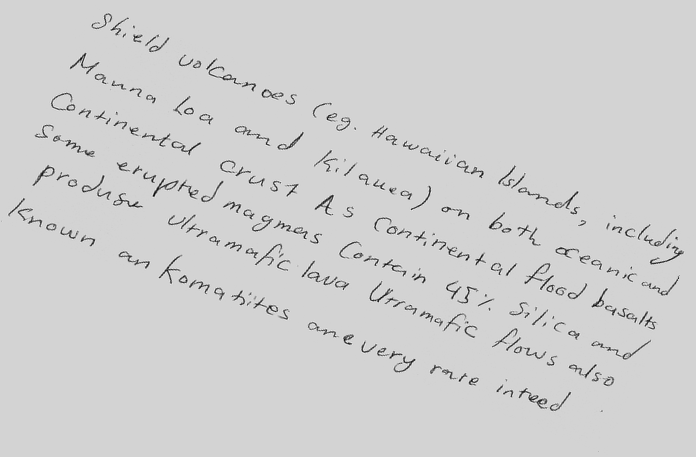 Shield volcanoes (eg. Hawaiian Islands, including
Mauna Loa and Kilauea) on both oceanic and
Continental crust As Continental flood basalts
Some erupted magmas Contain 45% Silica and
produse ultramafic lava Urramafic flows also
Known an Komatiites are very rare inteed